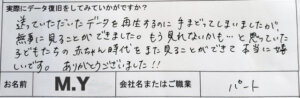 実際にデータ復旧をしてみていかがですか?
送っていただいたデータを再生するのに手まどってしまいましたが、
無事に見ることができました。もう見れないかも…と思っていた
子どもたちの赤ちゃん時代をまた見ることができて本当に嬉
しいです。ありがとうございました!!
お名前 M.Y 会社名またはご職業 パート